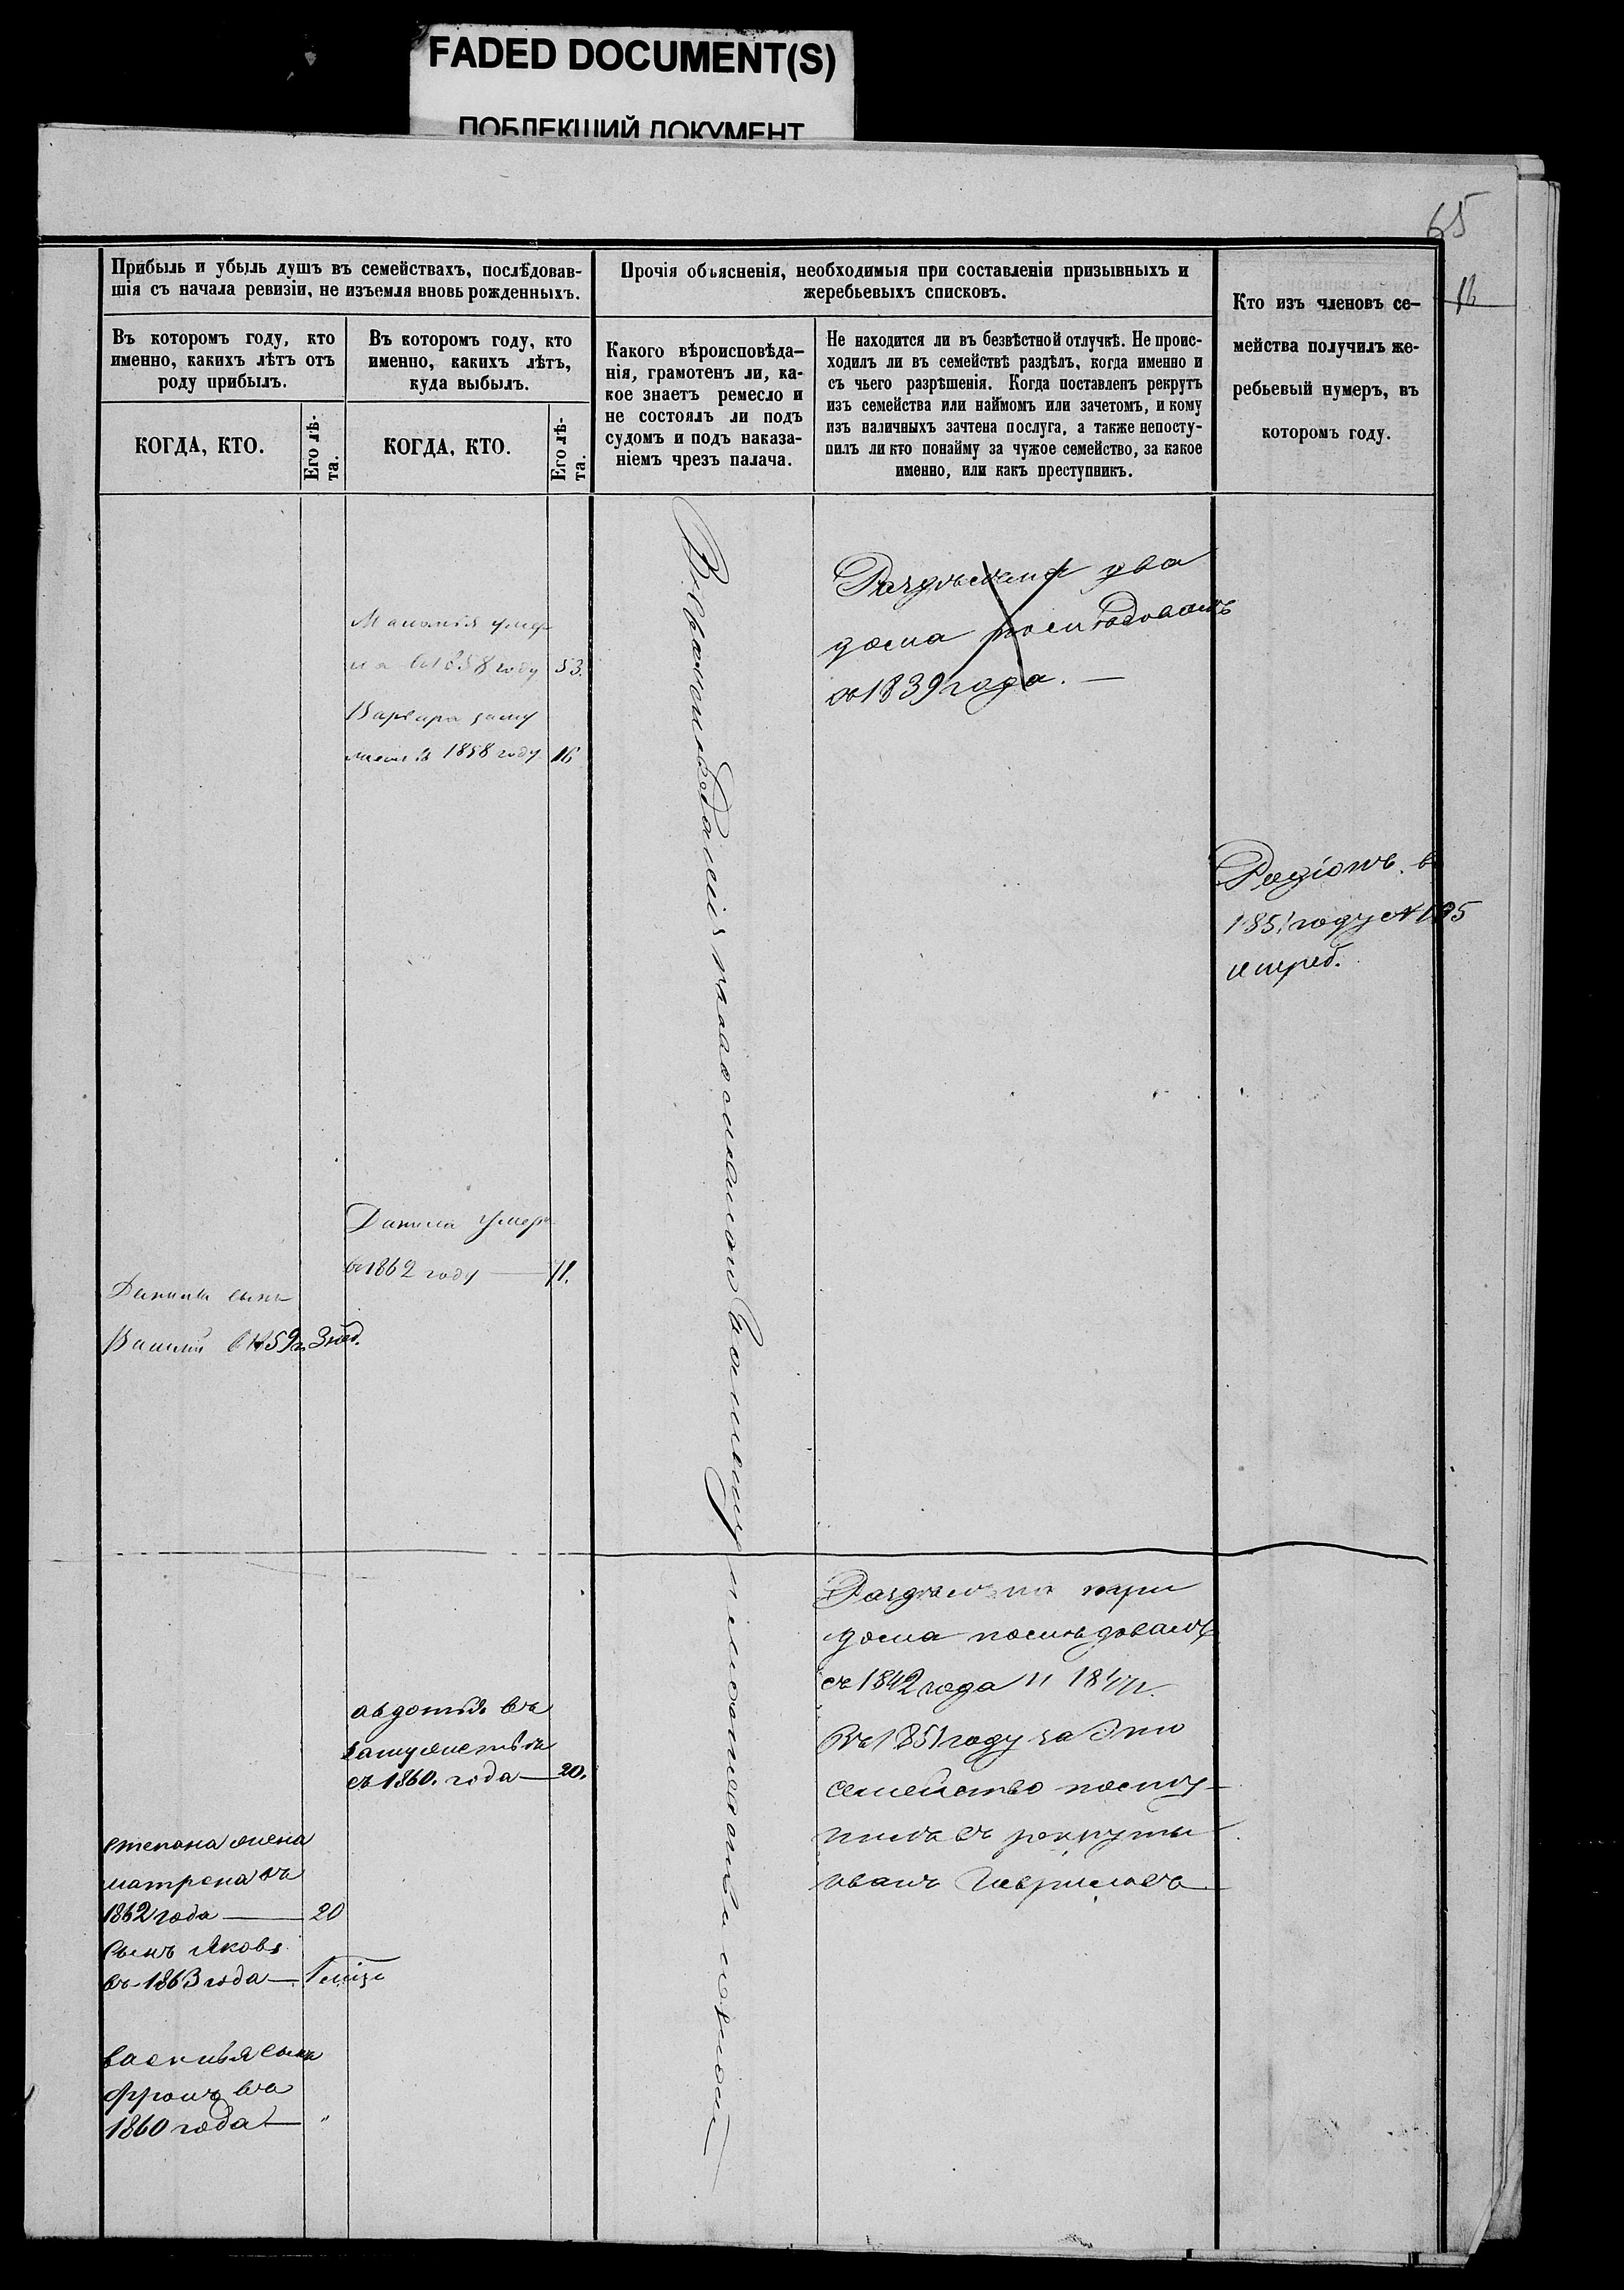 FADED DOCUMENT(S)
ПОБЛЕКШИЙ ДОКУМЕНТ
65
Прибыль и убыль душъ въ семействахъ, послѣдовав-
шія съ начала ревизіи, не изъемля вновь рожденныхъ.
Въ которомъ году, кто
именно, какихъ лѣтъ отъ
роду прибылъ.
КОГДА, КТО.
Его лѣ-
та.
Въ которомъ году, кто
именно, какихъ лѣтъ,
куда выбылъ.
КОГДА, КТО.
Его лѣ-
та.
Прочія объясненія, необходимыя при составленіи призывныхъ и
жеребьевыхъ списковъ.
Какого вѣроисповѣда-
нія, грамотенъ ли, ка-
кое знаетъ ремесло и
не состоялъ ли подъ
судомъ и подъ наказа-
ніемъ чрезъ палача.
Не находится ли въ безвѣстной отлучкѣ. Не проис-
ходилъ ли въ семействѣ раздѣлъ, когда именно и
съ чьего разрѣшенія. Когда поставленъ рекрутъ
изъ семейства или наймомъ или зачетомъ, и кому
изъ наличныхъ зачтена послуга, а также непосту-
пилъ ли кто понайму за чужое семейство, за какое
именно, или какъ преступникъ.
Кто изъ членовъ се-
мейства получилъ же-
ребьевый нумеръ, въ
которомъ году.
умер
ла въ 1858 году 53.
Варвара заму
жемъ въ 1858 году 16
Данила умеръ
въ 1862 году — 11.
Данилы сынъ
Василій въ 1859 г. 3 нед.
авдотья въ
замужествѣ
съ 1860. года — 20.
степана жена
матрена въ
1862 года — 20
Сынъ Яковъ
въ 1863 года — 1
василья сынъ
Фролъ въ
1860 года — "
Вѣроисповѣданія православнаго
Раздѣлъ на два
дома послѣдовалъ
въ 1839 года. —
Раздѣлъ на три
дома послѣдовалъ
съ 1842 года и
Въ 1851 году за Это
семейство посту-
пилъ въ рекруты
иванъ Гавриловъ
Родіонъ. в
1851 году № 195